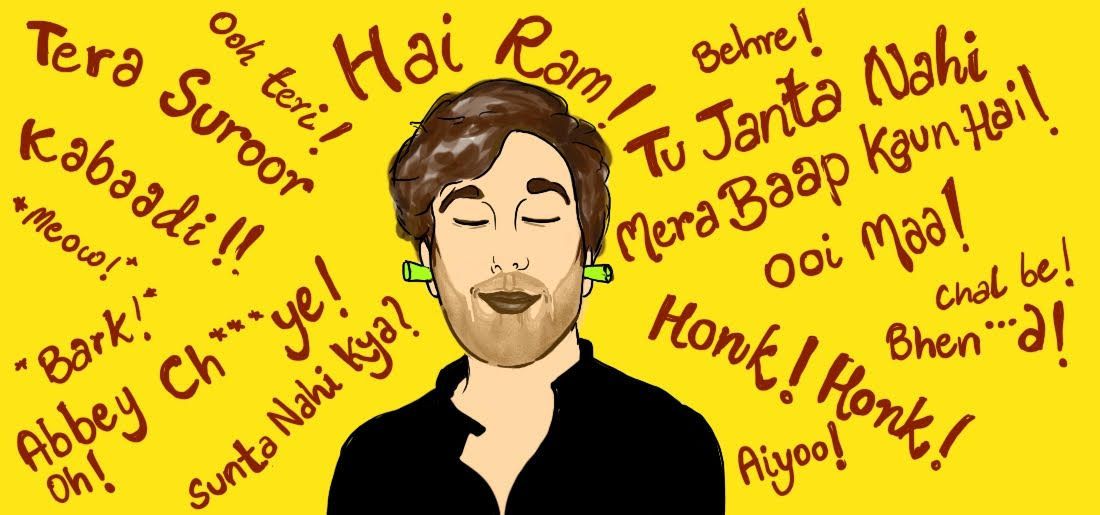 Tera Suroor
Ooh teri!
Hai Ram!
Behre!
Tu Janta Nahi
Mera Baap Kaun Hai!
Kabaadi!!
*Meow!*
*Bark!*
Abbey Ch***ye!
Oh!
Sunta Nahi Kya?
Ooi Maa!
Chal be!
Bhen...d!
Honk! Honk!
Aiyoo!